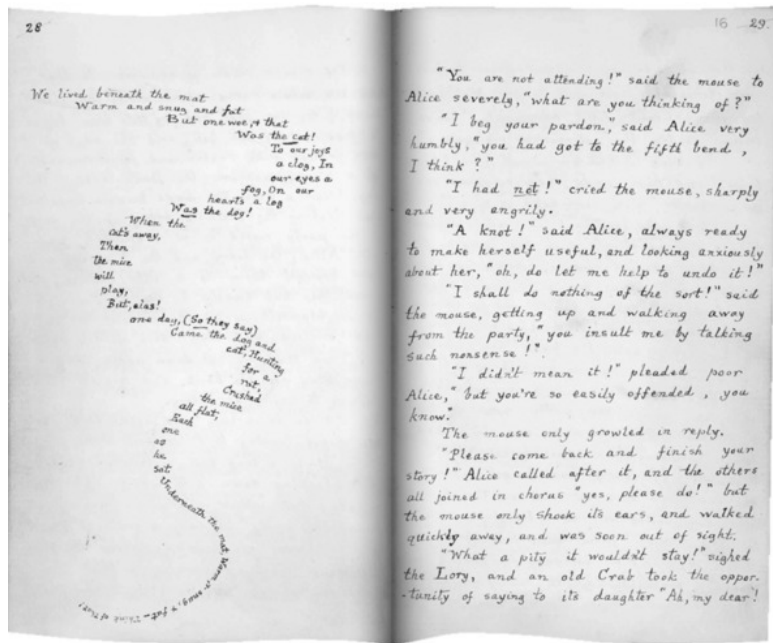 28
We lived beneath the mat
Warm and snug and fat
But one woe, & that
Was the cat!
To our joys
a clog, In
our eyes a
fog, On our
hearts a log
Was the dog!
When the
cat's away,
Then
the mice
will
play,
But, alas!
one day, (So they say)
Came the dog and
cat, Hunting
for a
rat,
Crushed
the mice
all flat,
Each
one
as
he
sat
Underneath the mat, Warm, & snug, & fat — Think of that!
16 29.
"You are not attending!" said the mouse to
Alice severely, "what are you thinking of?"
"I beg your pardon," said Alice very
humbly, "you had got to the fifth bend,
I think?"
"I had not!" cried the mouse, sharply
and very angrily.
"A knot!" said Alice, always ready
to make herself useful, and looking anxiously
about her, "oh, do let me help to undo it!"
"I shall do nothing of the sort!" said
the mouse, getting up and walking away
from the party, "you insult me by talking
such nonsense!".
"I didn't mean it!" pleaded poor
Alice, "but you're so easily offended, you
know."
The mouse only growled in reply.
"Please come back and finish your
story!" Alice called after it, and the others
all joined in chorus "yes, please do!" but
the mouse only shook its ears, and walked
quickly away, and was soon out of sight.
"What a pity it wouldn't stay!" sighed
the Lory, and an old Crab took the oppor-
-tunity of saying to its daughter "Ah, my dear!